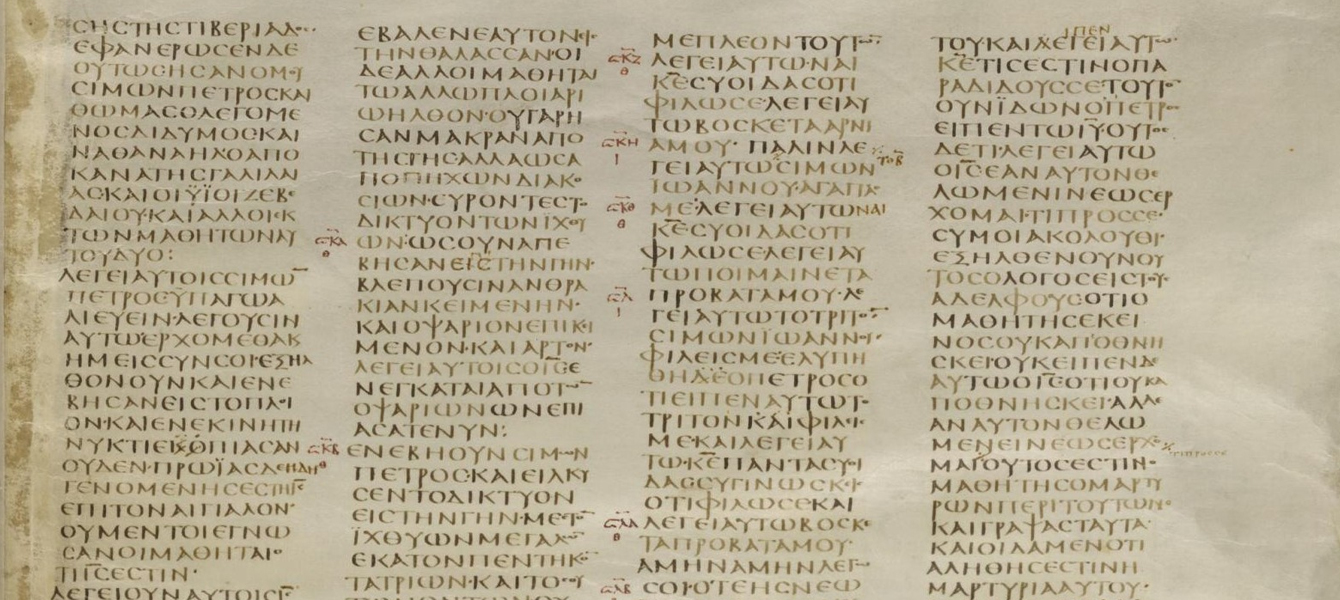 СНСТНСТІВЕРІАΔ
ЕΦΑΝΕΡШСΕΝΔΕ
ΟΥΤШСΗСΑΝΟΜΟΥ
СΙΜШΝΠΕΤΡΟСΚΑΙ
ΘШΜΑСΟΛΕΓΟΜΕ
ΝΟСΔΙΔΥΜΟСΚΑΙ
ΝΑΘΑΝΑΗΛΟΑΠΟ
ΚΑΝΑΤΗСΓΑΛΙΛΑΙ
ΑСΚΑΙΟΙΫΪΟΙΖΕΒΕ
ΔΑΙΟΥΚΑΙΑΛΛΟΙΕΚ
ΤШΝΜΑΘΗΤШΝΑΥ
ΤΟΥΔΥΟ:
ΛΕΓΕΙΑΥΤΟΙССΙΜШ̅
ΠΕΤΡΟСΫΠΑΓШΑ
ΛΙΕΥΕΙΝ·ΛΕΓΟΥСΙΝ
ΑΥΤШΕΡΧΟΜΕΘΑΚ
ΗΜΕΙССΥΝСΟΙ·ΕΞΗΛ
ΘΟΝΟΥΝΚΑΙΕΝΕ
ΒΗСΑΝΕΙСΤΟΠΛΟΙ
ΟΝ·ΚΑΙΕΝΕΚΙΝΗΤΗ
ΟΥΔΕΝ·ΠΡШΪΑСΔΕΗΔΗ
ΓΕΝΟΜΕΝΗСΕСΤΗΙ̅С̅
ΕΠΙΤΟΝΑΙΓΙΑΛΟΝ·
ΟΥΜΕΝΤΟΙΕΓΝШ
СΑΝΟΙΜΑΘΗΤΑΙΟ
ΤΙΙ̅С̅ΕСΤΙΝ·
ΛΕΓΕΙΟΥΝΑΥΤΟΙСΙ̅С̅
ΕΒΑΛΕΝΕΑΥΤΟΝΕΙ
ΤΗΝΘΑΛΑССΑΝ·ΟΙ
ΔΕΑΛΛΟΙΜΑΘΗΤΑΙ
ΤШΑΛΛШΠΛΟΙΑΡΙ
ШΗΛΘΟΝ·ΟΥΓΑΡΗ
СΑΝΜΑΚΡΑΝΑΠΟ
ΤΗСΓΗСΑΛΛΑШСΑ
ΠΟΠΗΧШΝΔΙΑΚΟ
СΙШΝ·СΥΡΟΝΤΕСΤΟ
ΔΙΚΤΥΟΝΤШΝΪΧΘΥ
ШΝ·ШСΟΥΝΑΠΕ
ΒΗСΑΝΕΙСΤΗΝΓΗΝ·
ΒΛΕΠΟΥСΙΝΑΝΘΡΑ
ΚΙΑΝΚΕΙΜΕΝΗΝ·
ΚΑΙΟΨΑΡΙΟΝΕΠΙΚΕΙ
ΜΕΝΟΝ·ΚΑΙΑΡΤΟΝ·
ΛΕΓΕΙΑΥΤΟΙСΟΙ̅С̅Ε
ΝΕΓΚΑΤΑΙΑΠΟΤШ̅
ΟΨΑΡΙШΝШΝΕΠΙ
ΑСΑΤΕΝΥΝ:
ΕΝΕΒΗΟΥΝСΙΜШΝ
ΠΕΤΡΟСΚΑΙΕΙΛΚΥ
СΕΝΤΟΔΙΚΤΥΟΝ
ΕΙСΤΗΝΓΗΝ·ΜΕСΤΟ̅
ΪΧΘΥШΝΜΕΓΑΛШ̅
ΕΚΑΤΟΝΠΕΝΤΗΚΟ̅
ΤΑΤΡΙШΝ·ΚΑΙΤΟСΟΥ
ΜΕΠΛΕΟΝΤΟΥΤШ̅·
ΛΕΓΕΙΑΥΤШ·ΝΑΙ
Κ̅Ε̅СΥΟΙΔΑСΟΤΙ
ΦΙΛШСΕ·ΛΕΓΕΙΑΥ
ΤШΒΟСΚΕΤΑΑΡΝΙ
ΑΜΟΥ· ΠΑΛΙΝΛΕ
ΓΕΙΑΥΤШСΙΜШΝ
ΪШΑΝΝΟΥ·ΑΓΑΠΑС
ΜΕ·ΛΕΓΕΙΑΥΤШΝΑΙ
Κ̅Ε̅СΥΟΙΔΑСΟΤΙ
ΦΙΛШСΕ·ΛΕΓΕΙΑΥ
ΤШΠΟΙΜΑΙΝΕΤΑ
ΠΡΟΒΑΤΑΜΟΥ·ΛΕ
ΓΕΙΑΥΤШΤΟΤΡΙΤΟ̅·
СΙΜШΝΪШΑΝΝΟΥ
ΦΙΛΕΙСΜΕ·ΕΛΥΠΗ
ΘΗΔΕΟΠΕΤΡΟСΟ
ΤΙΕΙΠΕΝΑΥΤШΤΟ
ΤΡΙΤΟΝ·ΚΑΙΦΙΛΕΙС
ΜΕ·ΚΑΙΛΕΓΕΙΑΥ
ΤШ·Κ̅Ε̅ΠΑΝΤΑСΥΟΙ
ΔΑССΥΓΙΝШСΚΕΙС
ΟΤΙΦΙΛШСΕ·ΚΑΙ
ΛΕΓΕΙΑΥΤШΒΟСΚΕ
ΤΑΠΡΟΒΑΤΑΜΟΥ·
ΑΜΗΝΑΜΗΝΛΕΓШ
СΟΙ·ΟΤΕΗСΝΕШ
ΤΟΥ·ΚΑΙΛΕΓΕΙΑΥΤШ·
Κ̅Ε̅ΤΙСΕСΤΙΝΟΠΑ
ΡΑΔΙΔΟΥССΕΤΟΥΤΟ̅
ΟΥΝΪΔШΝΟΠΕΤΡΟС
ΕΙΠΕΝΤШΙ̅Υ̅·ΟΥΤΟС
ΔΕΤΙ·ΛΕΓΕΙΑΥΤШ
ΟΙ̅С̅ΕΑΝΑΥΤΟΝΘΕ
ΛШΜΕΝΙΝΕШСΕΡ
ΧΟΜΑΙ·ΤΙΠΡΟССΕ·
СΥΜΟΙΑΚΟΛΟΥΘΕΙ·
ΕΞΗΛΘΕΝΟΥΝΟΥ
ΤΟСΟΛΟΓΟСΕΙСΤΟΥС
ΑΔΕΛΦΟΥСΟΤΙΟ
ΜΑΘΗΤΗСΕΚΕΙ
ΝΟСΟΥΚΑΠΟΘΝΗ
СΚΕΙ·ΟΥΚΕΙΠΕΝΔΕ
ΑΥΤШΟΙ̅С̅ΟΤΙΟΥΚΑ
ΠΟΘΝΗСΚΕΙ·ΑΛΛΕ
ΑΝΑΥΤΟΝΘΕΛШ
ΜΕΝΕΙΝΕШСΕΡΧΟ
ΜΑΙ·ΟΥΤΟСΕСΤΙΝ·
ΜΑΘΗΤΗСΟΜΑΡΤΥ
ΡШΝΠΕΡΙΤΟΥΤШΝ·
ΚΑΙΓΡΑΨΑСΤΑΥΤΑ·
ΚΑΙΟΙΔΑΜΕΝΟΤΙ
ΑΛΗΘΗСΕСΤΙΝΗ
ΜΑΡΤΥΡΙΑΑΥΤΟΥ·